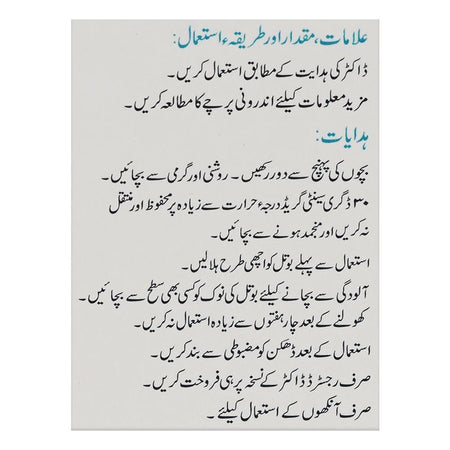 علامات، مقدار اور طریقہء استعمال:
ڈاکٹر کی ہدایت کے مطابق استعمال کریں۔
مزید معلومات کیلئے اندرونی پرچے کا مطالعہ کریں۔
ہدایات:
بچوں کی پہنچ سے دور رکھیں۔ روشنی اور گرمی سے بچائیں۔
۳۰ ڈگری سینٹی گریڈ درجہء حرارت سے زیادہ پر محفوظ اور منتقل
نہ کریں اور منجمد ہونے سے بچائیں۔
استعمال سے پہلے بوتل کو اچھی طرح ہلالیں۔
آلودگی سے بچانے کیلئے بوتل کی نوک کو کسی بھی سطح سے بچائیں۔
کھولنے کے بعد چار ہفتوں سے زیادہ استعمال نہ کریں۔
استعمال کے بعد ڈھکن کو مضبوطی سے بند کریں۔
صرف رجسٹرڈ ڈاکٹر کے نسخہ پر ہی فروخت کریں۔
صرف آنکھوں کے استعمال کیلئے۔